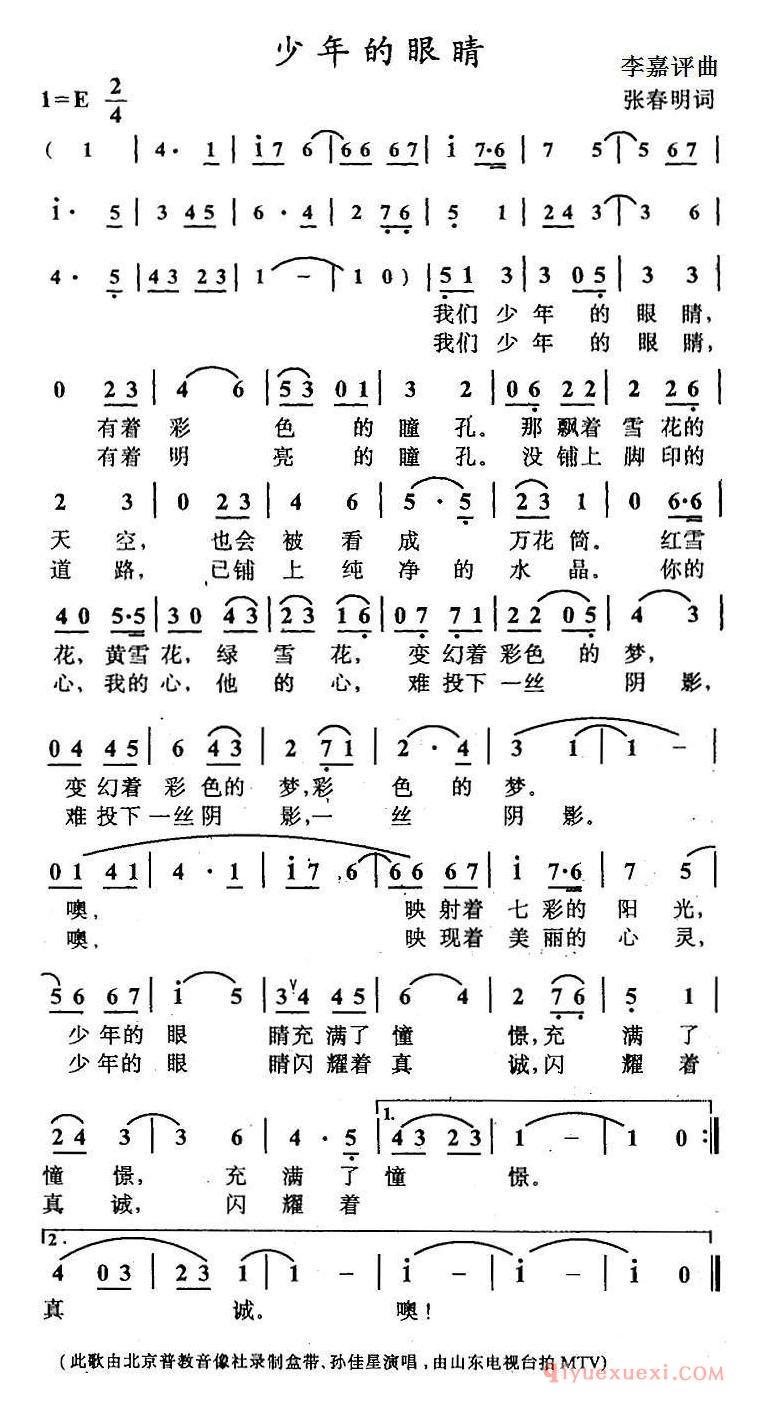 少年的眼睛
李嘉评曲
1=E 2/4
张春明词
( 1 | 4· 1 | i 7 6 | 6 6 6 7 | i 7·6 | 7 5 | 5 6 7 |
i· 5 | 3 4 5 | 6· 4 | 2 7 6 | 5 1 | 2 4 3 | 3 6 |
4· 5 | 4 3 2 3 | 1 – | 1 0 ) | 5 1 3 | 3 0 5 | 3 3 |
我们 少 年 的 眼 睛,
我们 少 年 的 眼 睛,
0 2 3 | 4 6 | 5 3 0 1 | 3 2 | 0 6 2 2 | 2 2 6 |
有着 彩 色 的 瞳 孔。 那 飘着 雪 花的
有着 明 亮 的 瞳 孔。 没 铺上 脚 印的
2 3 | 0 2 3 | 4 6 | 5· 5 | 2 3 1 | 0 6·6 |
天 空, 也会 被 看 成 万花 筒。 红雪
道 路, 已铺 上 纯 净 的 水 晶。 你的
4 0 5·5 | 3 0 4 3 | 2 3 1 6 | 0 7 7 1 | 2 2 0 5 | 4 3 |
花, 黄雪 花, 绿 雪 花, 变 幻着 彩色 的 梦,
心, 我的 心, 他 的 心, 难 投下 一丝 阴 影,
0 4 4 5 | 6 4 3 | 2 7 1 | 2· 4 | 3 1 | 1 – |
变 幻着 彩 色的 梦,彩 色 的 梦。
难 投下 一丝 阴 影,一 丝 阴 影。
0 1 4 1 | 4· 1 | i 7 6 | 6 6 6 7 | i 7·6 | 7 5 |
噢, 映 射着 七 彩的 阳 光,
噢, 映 现着 美 丽的 心 灵,
5 6 6 7 | i 5 | 3 V 4 4 5 | 6 4 | 2 7 6 | 5 1 |
少 年的 眼 睛充 满了 憧 憬,充 满 了
少 年的 眼 睛闪 耀着 真 诚,闪 耀 着
1.
2 4 3 | 3 6 | 4· 5 | 4 3 2 3 | 1 – | 1 0 :‖
憧 憬, 充 满 了 憧 憬。
真 诚, 闪 耀 着
2.
4 0 3 | 2 3 1 | 1 – | i – | i – | i 0 ‖
真 诚。 噢!
(此歌由北京普教音像社录制盒带、孙佳星演唱,由山东电视台拍MTV)
qiyuexuexi.com